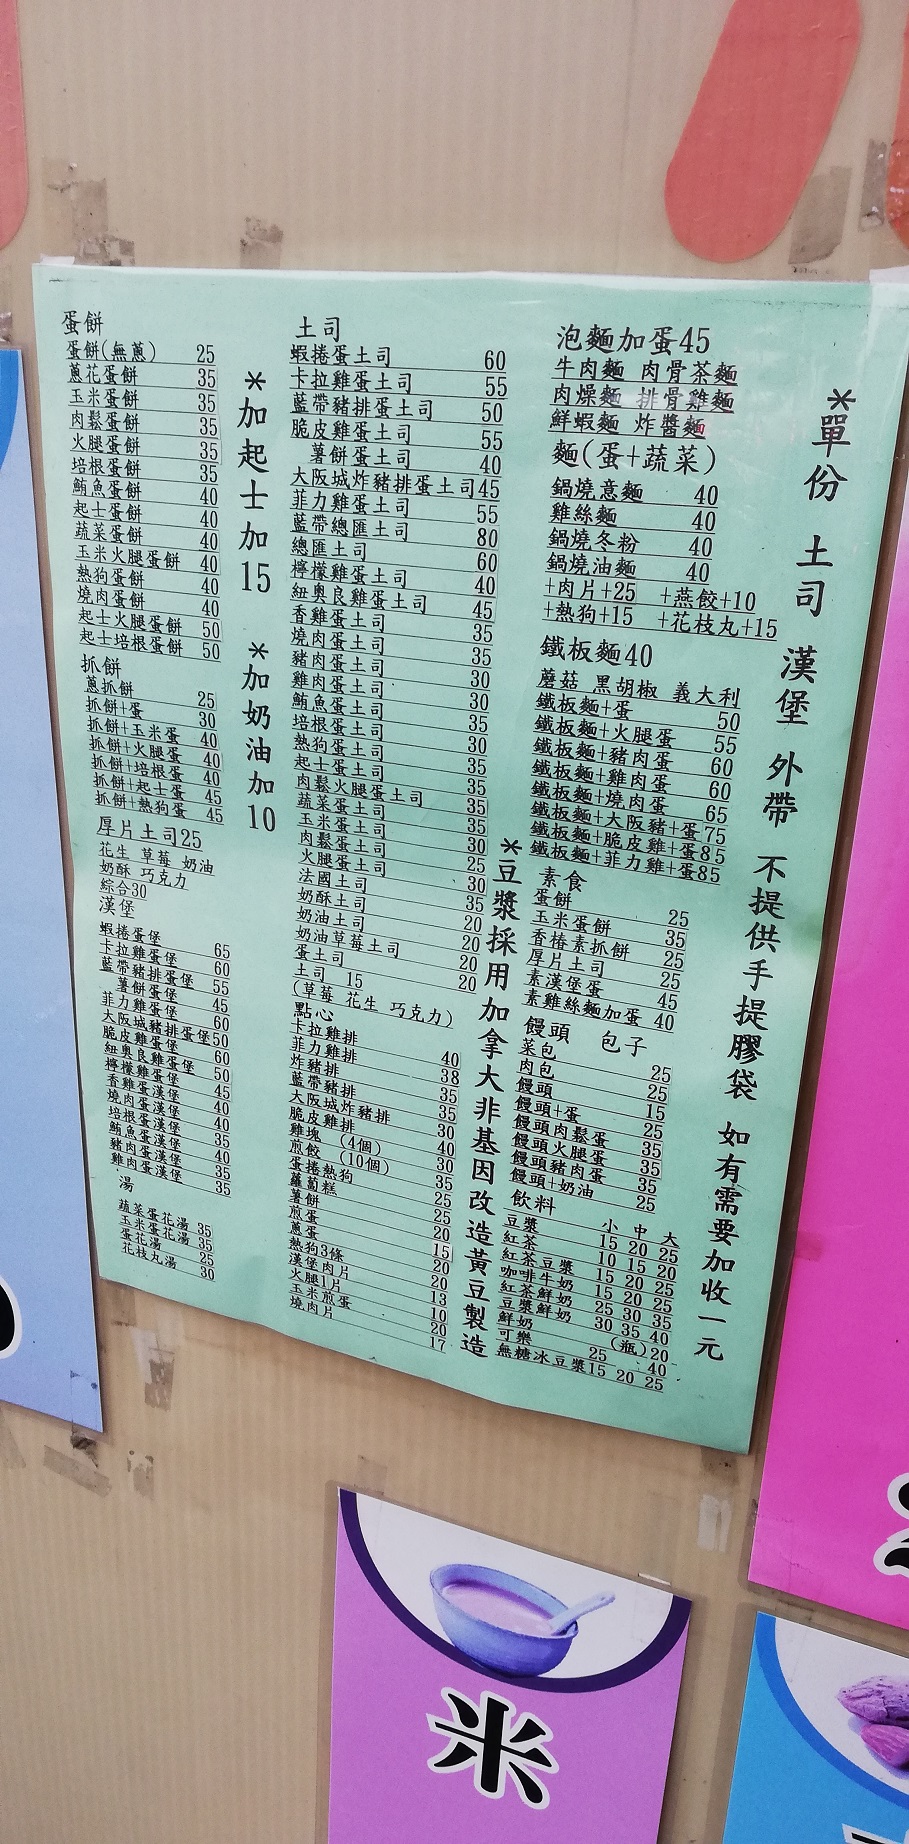 蛋餅
蛋餅(無蔥) 25
蔥花蛋餅 35
玉米蛋餅 35
肉鬆蛋餅 35
火腿蛋餅 35
培根蛋餅 35
鮪魚蛋餅 40
起士蛋餅 40
蔬菜蛋餅 40
玉米火腿蛋餅 40
熱狗蛋餅 40
燒肉蛋餅 40
起士火腿蛋餅 50
起士培根蛋餅 50
抓餅
蔥抓餅 25
抓餅+蛋 30
抓餅+玉米蛋 40
抓餅+火腿蛋 40
抓餅+培根蛋 40
抓餅+起士蛋 45
抓餅+熱狗蛋 45
厚片土司25
花生 草莓 奶油
奶酥 巧克力
綜合30
漢堡
蝦捲蛋堡 65
卡拉雞蛋堡 60
藍帶豬排蛋堡 55
薯餅蛋堡 45
菲力雞蛋堡 60
大阪城豬排蛋堡50
脆皮雞蛋堡 60
紐奧良雞蛋堡 50
檸檬雞蛋堡 45
香雞蛋漢堡 40
燒肉蛋漢堡 40
培根蛋漢堡 35
鮪魚蛋漢堡 40
豬肉蛋漢堡 35
雞肉蛋漢堡 35
湯
蔬菜蛋花湯 35
玉米蛋花湯 35
蛋花湯 25
花枝丸湯 30
*加起士加15
*加奶油加10
土司
蝦捲蛋土司 60
卡拉雞蛋土司 55
藍帶豬排蛋土司 50
脆皮雞蛋土司 55
薯餅蛋土司 40
大阪城炸豬排蛋土司45
菲力雞蛋土司 55
藍帶總匯土司 80
總匯土司 60
檸檬雞蛋土司 40
紐奧良雞蛋土司 45
香雞蛋土司 35
燒肉蛋土司 35
豬肉蛋土司 30
雞肉蛋土司 30
鮪魚蛋土司 35
培根蛋土司 30
熱狗蛋土司 35
起士蛋土司 35
肉鬆火腿蛋土司 35
蔬菜蛋土司 35
玉米蛋土司 30
肉鬆蛋土司 25
火腿蛋土司 30
法國土司 35
奶酥土司 20
奶油土司 20
奶油草莓土司 20
蛋土司 20
土司 15
(草莓 花生 巧克力)
點心
卡拉雞排 40
菲力雞排 38
炸豬排 35
藍帶豬排 35
大阪城炸豬排 30
脆皮雞排 40
雞塊 (4個) 30
煎餃 (10個) 35
蛋捲熱狗 25
蘿蔔糕 25
薯餅 20
煎蛋 15
蔥蛋 20
熱狗3條 20
漢堡肉片 13
火腿1片 10
玉米煎蛋 20
燒肉片 17
*豆漿採用加拿大非基因改造黃豆製造
泡麵加蛋45
牛肉麵 肉骨茶麵
肉燥麵 排骨雞麵
鮮蝦麵 炸醬麵
麵(蛋+蔬菜)
鍋燒意麵 40
雞絲麵 40
鍋燒冬粉 40
鍋燒油麵 40
+肉片+25 +燕餃+10
+熱狗+15 +花枝丸+15
鐵板麵40
蘑菇 黑胡椒 義大利
鐵板麵+蛋 50
鐵板麵+火腿蛋 55
鐵板麵+豬肉蛋 60
鐵板麵+雞肉蛋 60
鐵板麵+燒肉蛋 65
鐵板麵+大阪豬+蛋75
鐵板麵+脆皮雞+蛋85
鐵板麵+菲力雞+蛋85
素食
蛋餅 25
玉米蛋餅 35
香椿素抓餅 25
厚片土司 25
素漢堡蛋 45
素雞絲麵加蛋 40
饅頭 包子
菜包 25
肉包 25
饅頭 15
饅頭+蛋 25
饅頭肉鬆蛋 35
饅頭火腿蛋 35
饅頭豬肉蛋 35
饅頭+奶油 25
飲料 小 中 大
豆漿 15 20 25
紅茶 10 15 20
紅茶豆漿 15 20 25
咖啡牛奶 15 20 25
紅茶鮮奶 25 30 35
豆漿鮮奶 30 35 40
鮮奶 (瓶)20
可樂 25 40
無糖冰豆漿15 20 25
*單份 土司 漢堡 外帶 不提供手提膠袋 如有需要加收一元
米